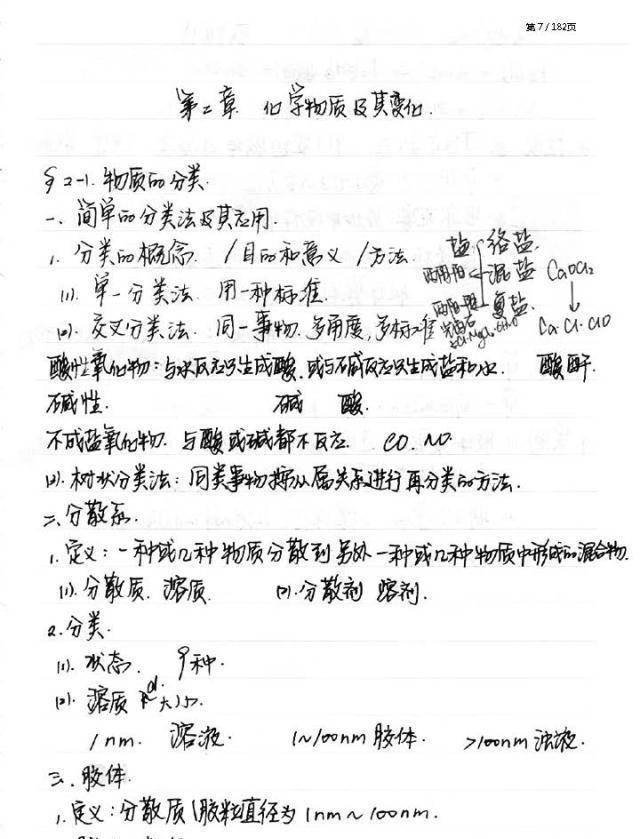 第7/182页
第二章 化学物质及其变化.
§2-1. 物质的分类.
一、简单的分类法及其应用.
1. 分类的概念 / 目的和意义 / 方法
盐 络盐.
混盐 CaOCl2
复盐.
Ca·Cl·ClO
(1). 单一分类法 用一种标准
(2). 交叉分类法 同一事物. 多角度, 多标准
酸性氧化物: 与水反应只生成酸, 或与碱反应只生成盐和水. 酸酐.
碱性. 碱 酸.
不成盐氧化物. 与酸或碱都不反应. CO. NO.
(3). 树状分类法: 同类事物按从属关系进行再分类的方法.
二、分散系.
1. 定义: 一种或几种物质分散到另外一种或几种物质中形成的混合物.
(1). 分散质. 溶质. (2). 分散剂 溶剂.
2. 分类.
(1). 状态. 9种.
(2). 溶质 d 大小.
1nm. 溶液. 1~100nm 胶体. >100nm 浊液.
三、胶体.
1. 定义: 分散质(胶粒直径为 1nm~100nm.